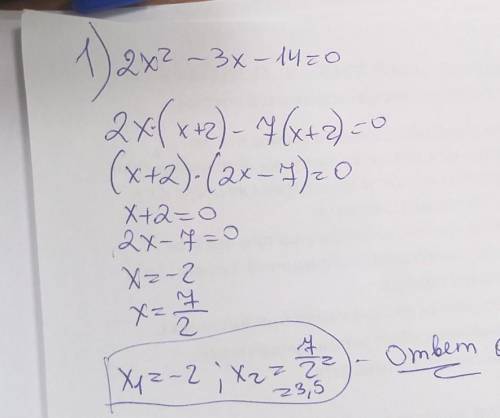 1) 2x² - 3x - 14 = 0
2x·(x+2) - 7(x+2) = 0
(x+2)·(2x-7) = 0
x+2=0
2x-7=0
x=-2
x=7/2
x₁=-2 ; x₂=7/2= - Ответ
=3,5